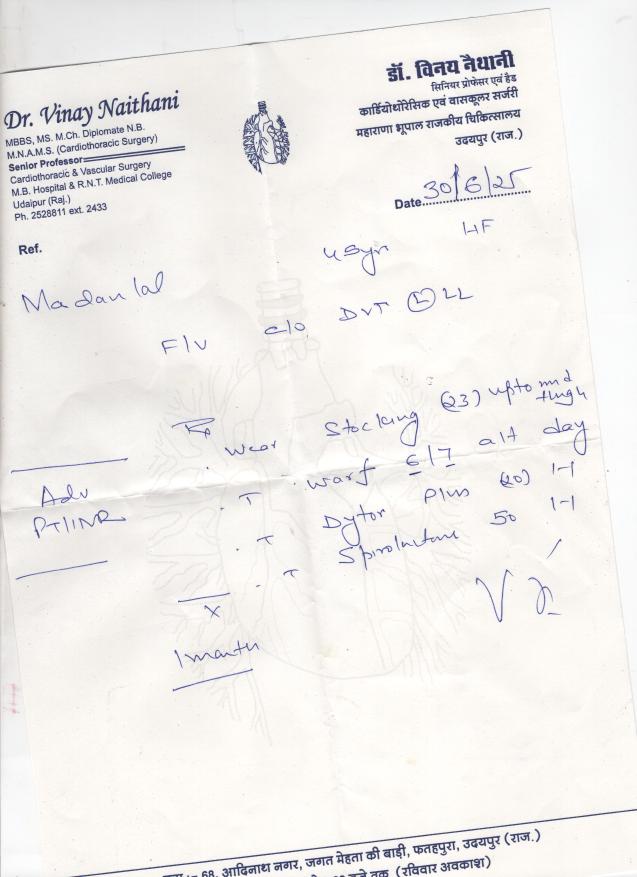 Dr. Vinay Naithani
MBBS, MS. M.Ch. Diplomate N.B.
M.N.A.M.S. (Cardiothoracic Surgery)
Senior Professor
Cardiothoracic & Vascular Surgery
M.B. Hospital & R.N.T. Medical College
Udaipur (Raj.)
Ph. 2528811 ext. 2433
डॉ. विनय नैथानी
सिनियर प्रोफेसर एवं हैड
कार्डियोथोरेसिक एवं वासकूलर सर्जरी
महाराणा भूपाल राजकीय चिकित्सालय
उदयपुर (राज.)
Date 30/6/25
Ref.
Madanlal
F/U c/o DVT (L) LL
Rx
Wear Stocking (23) upto mid thigh
T Warf 6/7 alt day
T Dytor Plus (20) 1-1
T 50 1-1
Adv
PT/INR
x
1 month
68, आदिनाथ नगर, जगत मेहता की बाड़ी, फतहपुरा, उदयपुर (राज.)
तक (रविवार अवकाश)